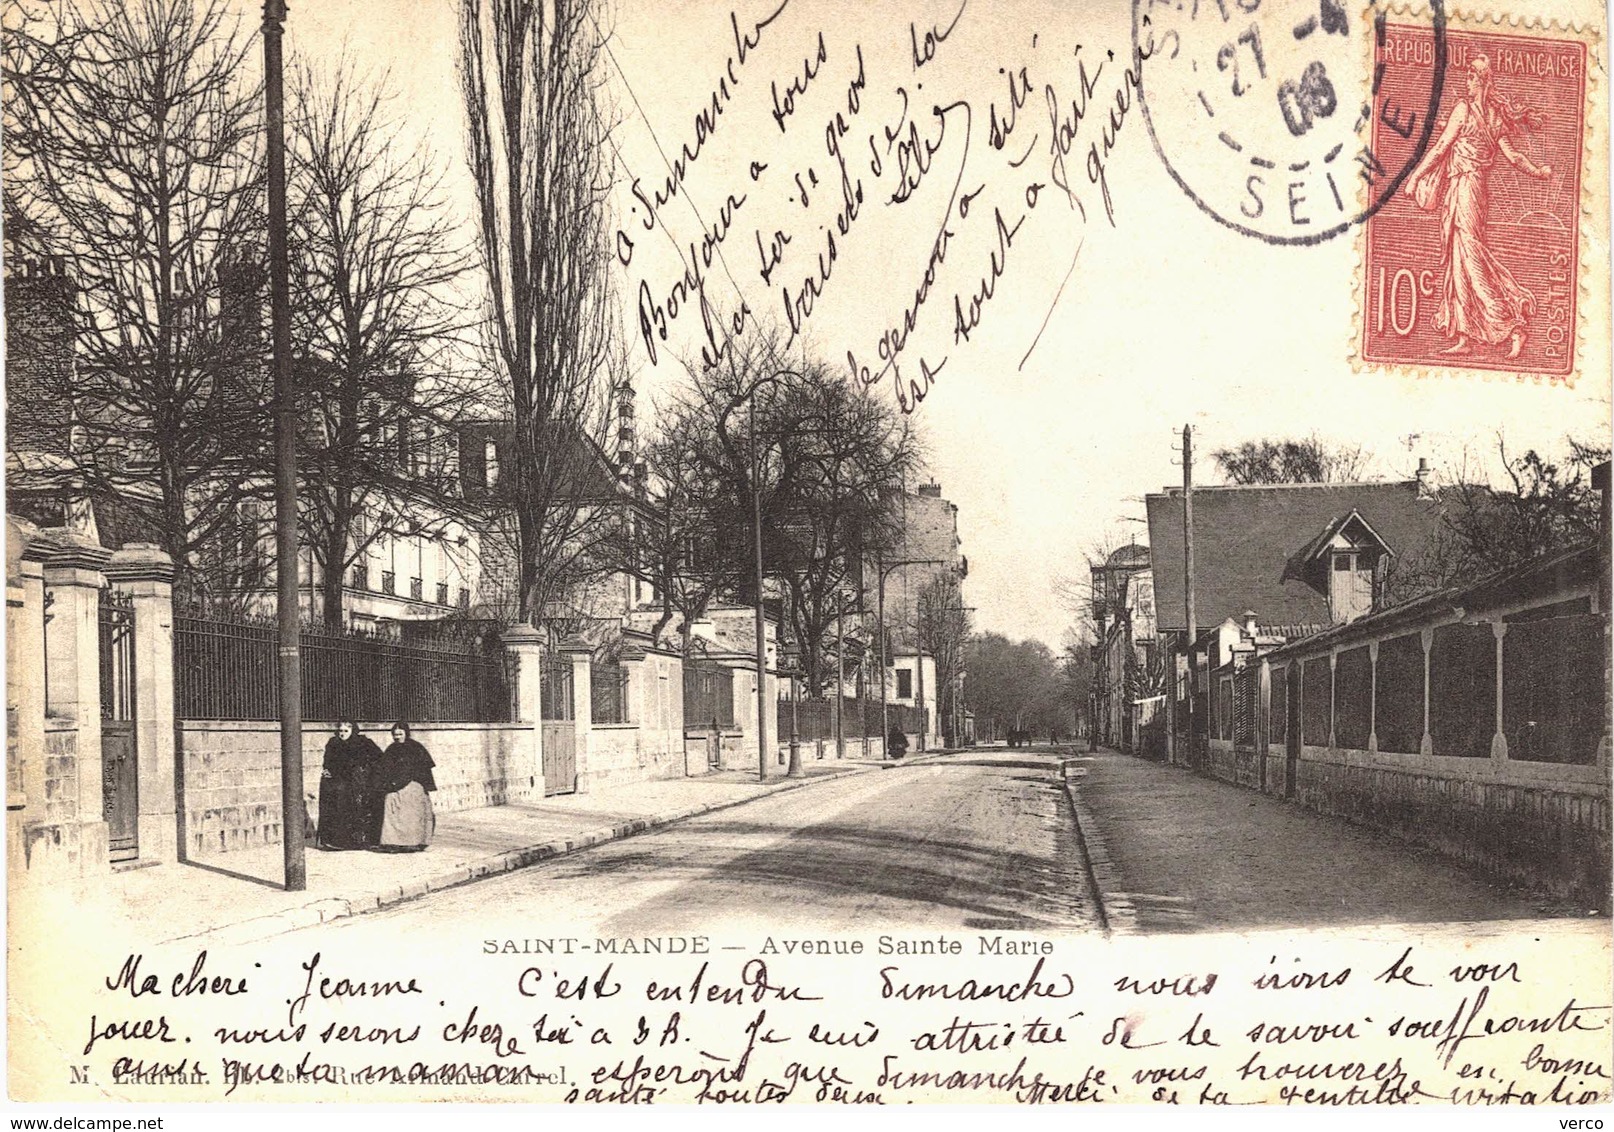 à dimanche
Bonjour a tous
et a toi de gros
baisers de ta
Lili
le genou a
est tout à fait
guéri
RÉPUBLIQUE FRANÇAISE
10c
POSTES
27 -4
06
SEINE
SAINT-MANDÉ — Avenue Sainte Marie
Ma cheri Jeanne. C'est entendu dimanche nous irons te voir
jouer. nous serons chez toi a 3 h. Je suis attristée de te savoir souffrante
ainsi que ta maman espérons que dimanche je vous trouverez en bonne
M. Laurian. Rue Armand Carrel.
santé toutes deux. Merci de ta gentille invitation
verco